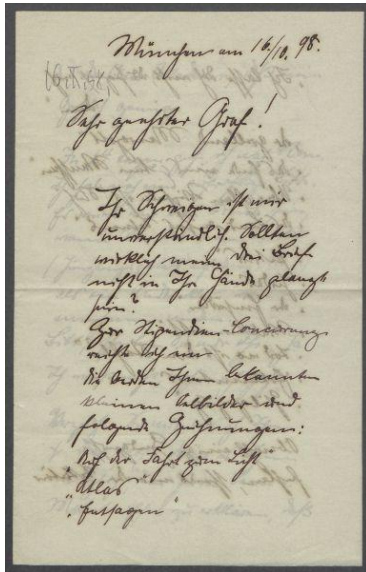 München am 16./10. 98.
16. X. 98.
Sehr geehrter Graf!
Ihr Schweigen ist mir
unverständlich. Sollten
wirklich meine drei Briefe
nicht in Ihre Hände gelangt
sein?
Zur Stipendien-Concurrenz
reichte ich ein
die beiden Ihnen bekannten
kleinen Ölbilder und
folgende Zeichnungen:
„Auf der Fahrt zum Licht“
„Atlas“
„Entsagen“